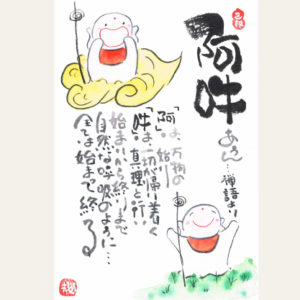 阿吽
あうん…禅語より
「阿」は、万物の
始まり
「吽」は、一切が帰り着く
真理と行
始まりから終りまで
自然な呼吸のように…
全ては始まって終る